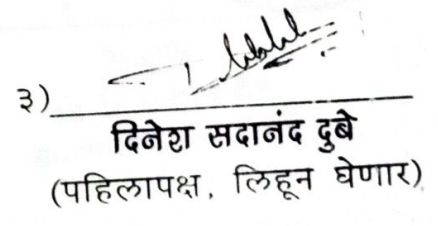 ३)
दिनेश सदानंद दुबे
(पहिलापक्ष, लिहून घेणार)